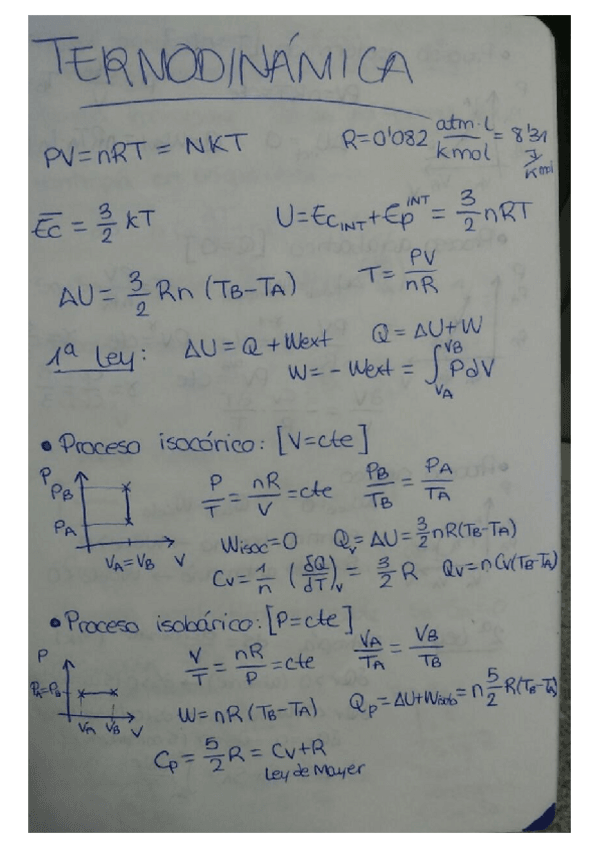 TERMODINÁMICA
PV=nRT = NKT R=0'082 atm·l/kmol = 8'31 J/kmol
Ec̅ = 3/2 kT U=Ec INT+Ep INT = 3/2 nRT
ΔU= 3/2 Rn (TB-TA) T= PV/nR
1ª Ley: ΔU= Q + Wext Q= ΔU+W
W=- Wext = ∫VA VB PdV
• Proceso isocórico: [V=cte]
P PB PA VA=VB V
P/T = nR/V =cte PB/TB = PA/TA
Wisoc=0 Qv= ΔU= 3/2 nR(TB-TA)
Cv= 1/n (δQ/dT)v = 3/2 R Qv=nCv(TB-TA)
• Proceso isobárico: [P=cte]
P PA=PB VA VB V
V/T = nR/P =cte VA/TA = VB/TB
W= nR(TB-TA) Qp= ΔU+Wisob= n 5/2 R(TB-TA)
Cp= 5/2 R= Cv+R
Ley de Mayer